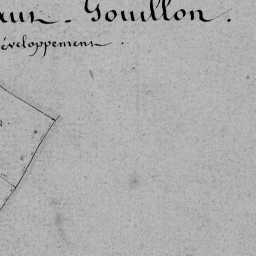 aux-Gouillon.
éveloppement.